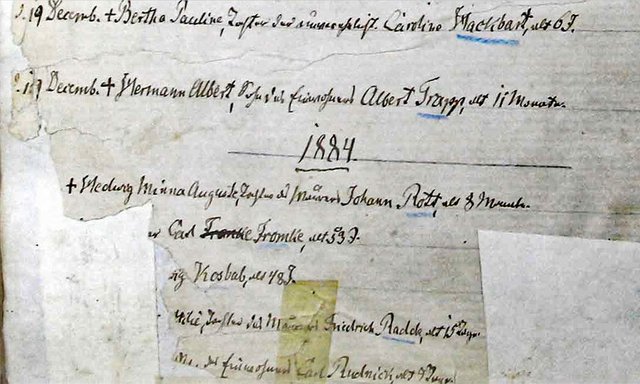 d. 19 Decemb. + Bertha Pauline, Tochter der unverehelicht. Caroline Wackbart, alt 6 J.
d. 19 Decemb. + Hermann Albert, Sohn des Einwohners Albert Trapp, alt 11 Monate.
1884.
+ Hedwig Minna Auguste, Tochter d. Maurers Johann Rott, alt 8 Monate.
Carl Fromke, alt 53 J.
Kosbab, alt 48 J.
Tochter des Maurers Friedrich Radde, alt 15 Tage.
des Einwohners Carl Rudnick, alt Tage